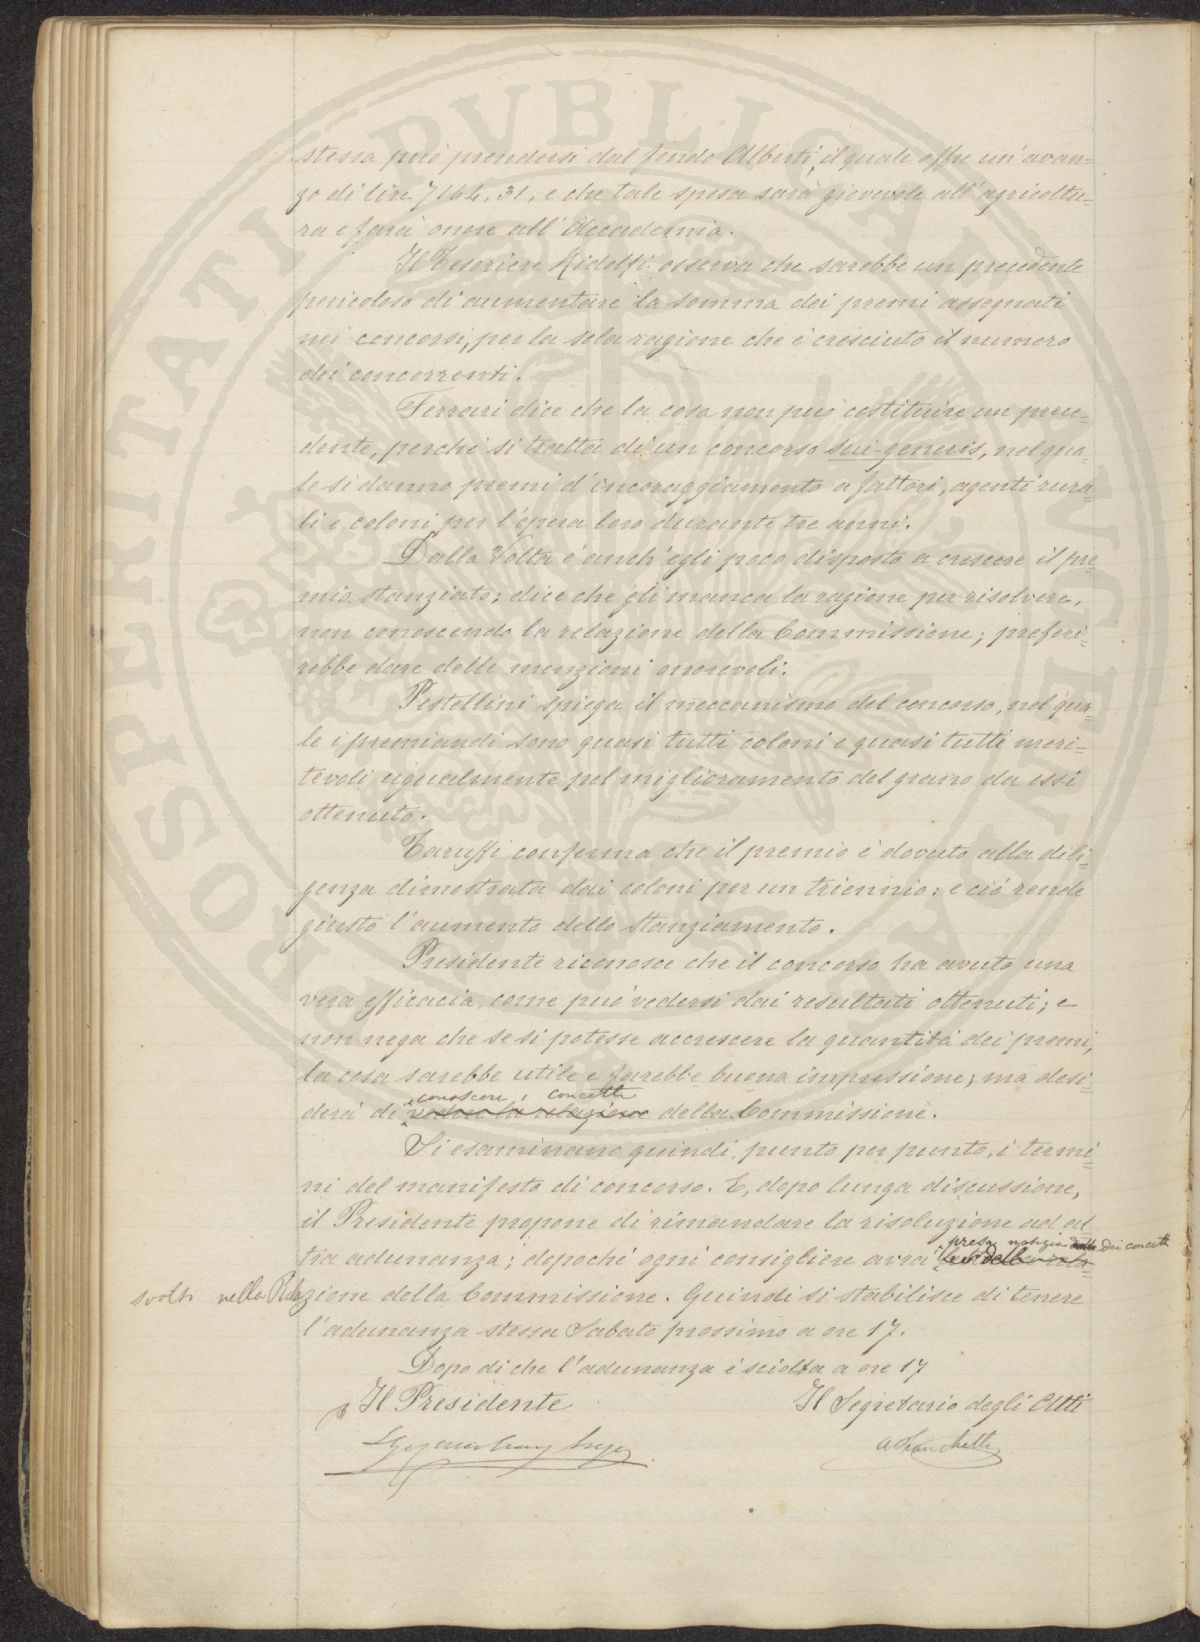 stessa può prendersi dal fondo Alberti, il quale offre un'avan=
zo di lire 7164.31, e che tale spesa sarà giovevole all'agricoltu=
ra e farà onore all'Accademia.
Il Tesoriere Ridolfi osserva che sarebbe un precedente
pericoloso di aumentare la somma dei premi assegnati
nei concorsi, per la sola ragione che è cresciuto il numero
dei concorrenti.
Ferrari dice che la cosa non può costituire un prece=
dente, perchè si tratta di un concorso sui generis, nel qua=
le si danno premi d'incoraggiamento a fattori, agenti rura=
li e coloni per l'opera loro durante tre anni.
Dalla Volta è anch'egli poco disposto a crescere il pre=
mio stanziato; dice che gli manca la ragione per risolvere,
non conoscendo la relazione della Commissione; preferi=
rebbe dare delle menzioni onorevoli.
Pestellini spiega il meccanismo del concorso, nel qua=
le i premiandi sono quasi tutti coloni e quasi tutti meri=
tevoli ugualmente pel miglioramento del grano da essi
ottenuto.
Taruffi conferma che il premio è dovuto alla dili=
genza dimostrata dai coloni per un triennio: e ciò rende
giusto l'aumento dello stanziamento.
Presidente riconosce che il concorso ha avuto una
vera efficacia, come può vedersi dai resultati ottenuti; e
non nega che se si potesse accrescere la quantità dei premi,
la cosa sarebbe utile e farebbe buona impressione; ma desi=
conoscere i concetti
dera di vedere la relazione della Commissione.
Si esaminano quindi, punto per punto, i termi=
ni del manifesto di concorso. E, dopo lunga discussione,
il Presidente propone di rimandare la risoluzione ad al
presa notizia dei concetti
tra adunanza; dopochè ogni consigliere avrà
svolti nella Relazione della Commissione. Quindi si stabilisce di tenere
l'adunanza stessa Sabato prossimo a ore 17.
Dopo di che l'adunanza è sciolta a ore 17
Il Presidente Il Segretario degli Atti
PROSPERITATI PVBLICAE AVGENDAE